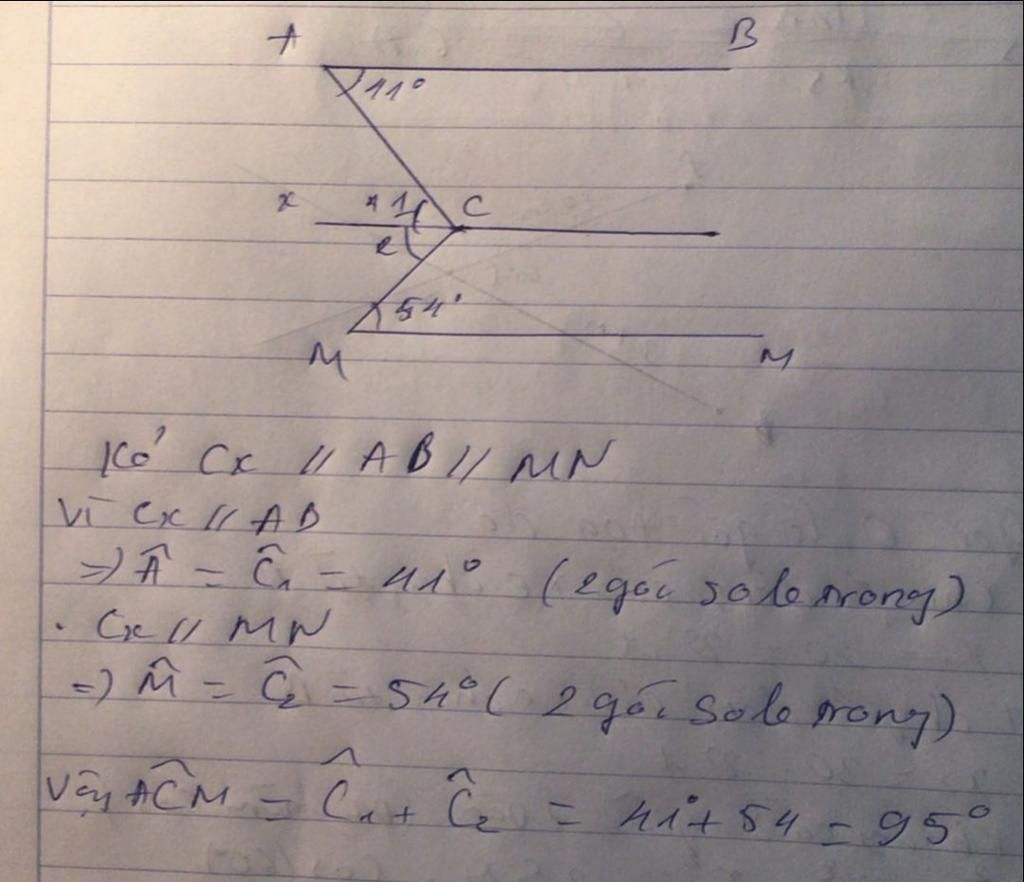 A B
41°
x 1 C
2
54°
M M
Kẻ Cx // AB // MN
Vì Cx // AB
=> Â = Ĉ₁ = 41° (2 góc so le trong)
. Cx // MN
=> M̂ = Ĉ₂ = 54° (2 góc so le trong)
Vậy AĈM = Ĉ₁ + Ĉ₂ = 41° + 54 = 95°